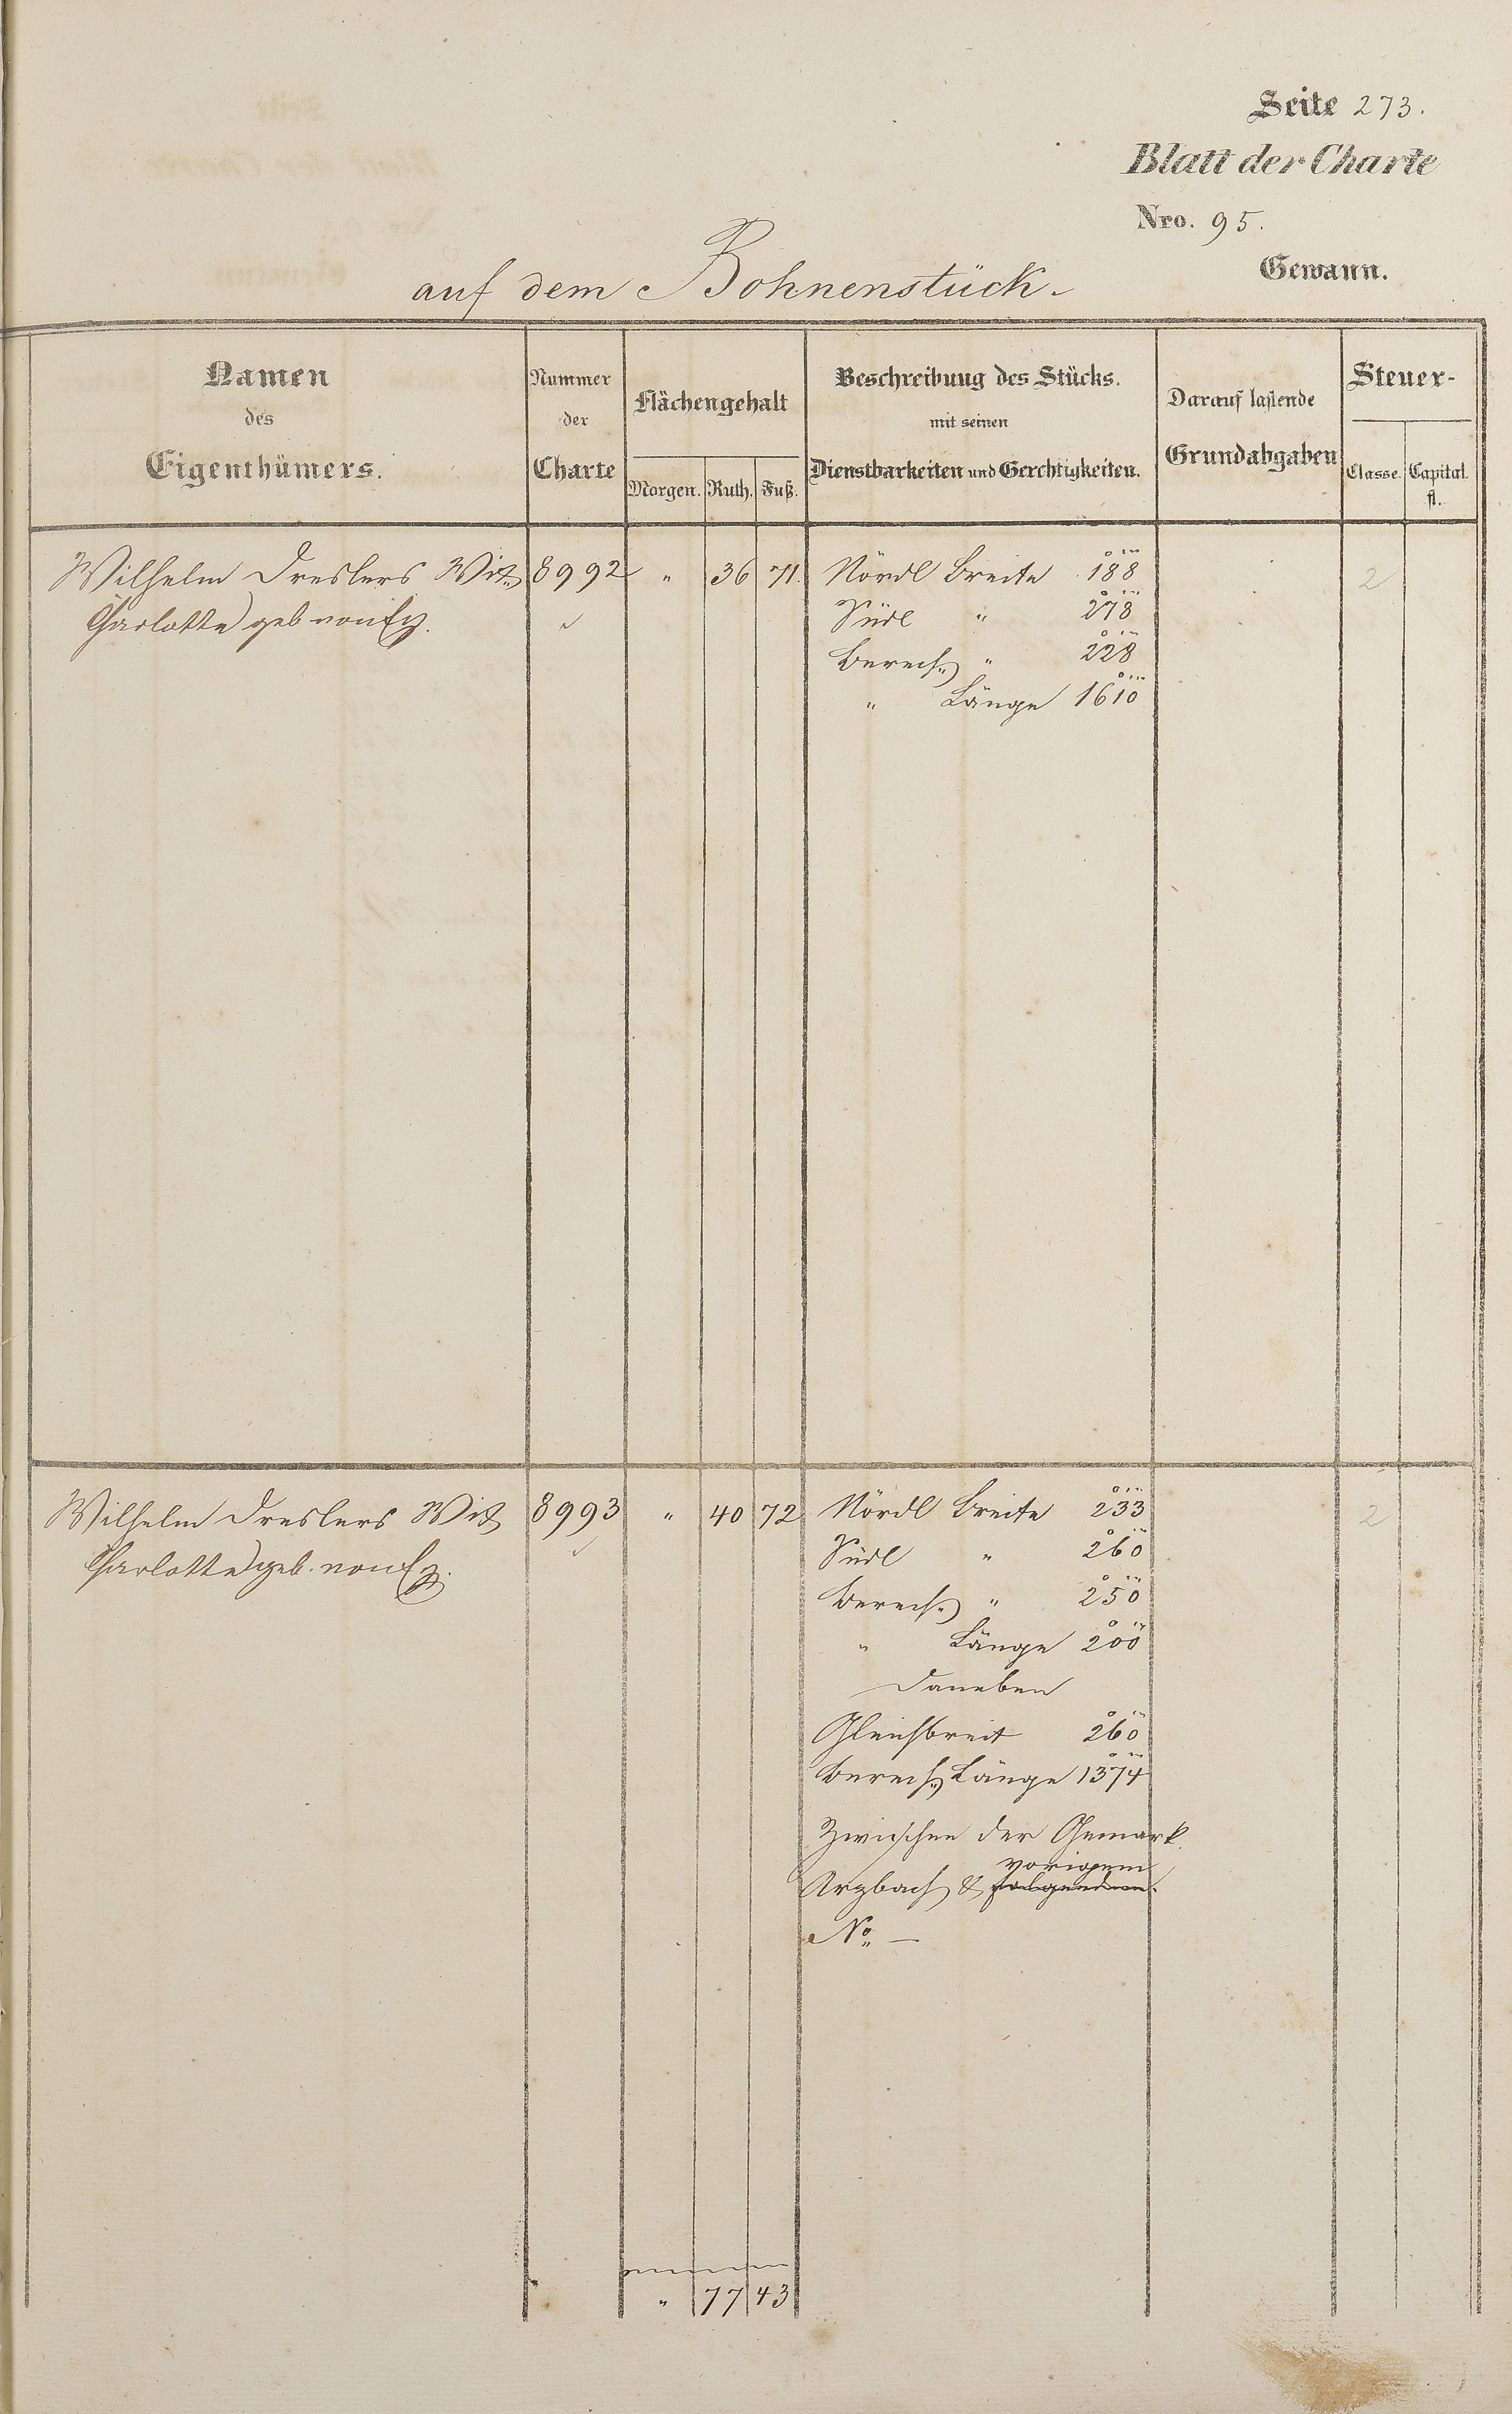 Seite 273.
Blatt der Charte
Nro. 95.
Gewann.
auf dem Bohnenstück.
Namen
des
Eigenthümers.
Nummer
der
Charte
Flächengehalt
Morgen. Ruth. Fuß.
Beschreibung des Stücks.
mit seinen
Dienstbarkeiten und Gerechtigkeiten.
Darauf lastende
Grundabgaben
Steuer-
Classe. Capital.
fl.
Wilhelm Dreslers Wit. 8992 " 36 71. Nördl Breite 188 2
Charlotte geb von
Südl " 278
Berech. " 228
" Länge 1610
Wilhelm Dreslers Wit 8993 " 40 72 Nördl Breite 233 2
Charlotte geb. von
Südl " 260
Berech. " 250
" Länge 200
Daneben
Gleichbreit 260
Berech. Länge 1374
Zwischen der Gemark.
vorigem
Arzbach & folgendem.
No —
" 77 43